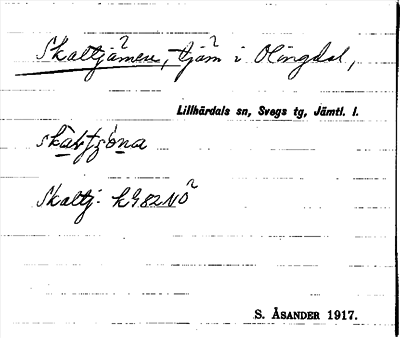 Skaltjärnen, tjärn i Olingdal,
Lillhärdals sn, Svegs tg, Jämtl. l.
Skaltj. k982NÖ
S. ÅSANDER 1917.